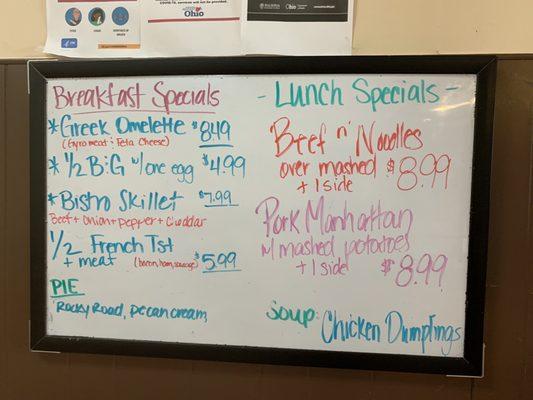 Ohio
Ohio
Breakfast Specials
* Greek Omelette $8.49
(Gyro meat + Feta Cheese)
* 1/2 B:G w/ one egg $4.99
* Bistro Skillet $7.99
Beef + onion + pepper + cheddar
1/2 French Tst
+ meat (bacon, ham, sausage) $5.99
PIE
Rocky Road, pecan cream,
- Lunch Specials -
Beef n' Noodles
over mashed $8.99
+ 1 side
Pork Manhattan
w/ mashed potatoes
+ 1 side $8.99
Soup: Chicken Dumplings